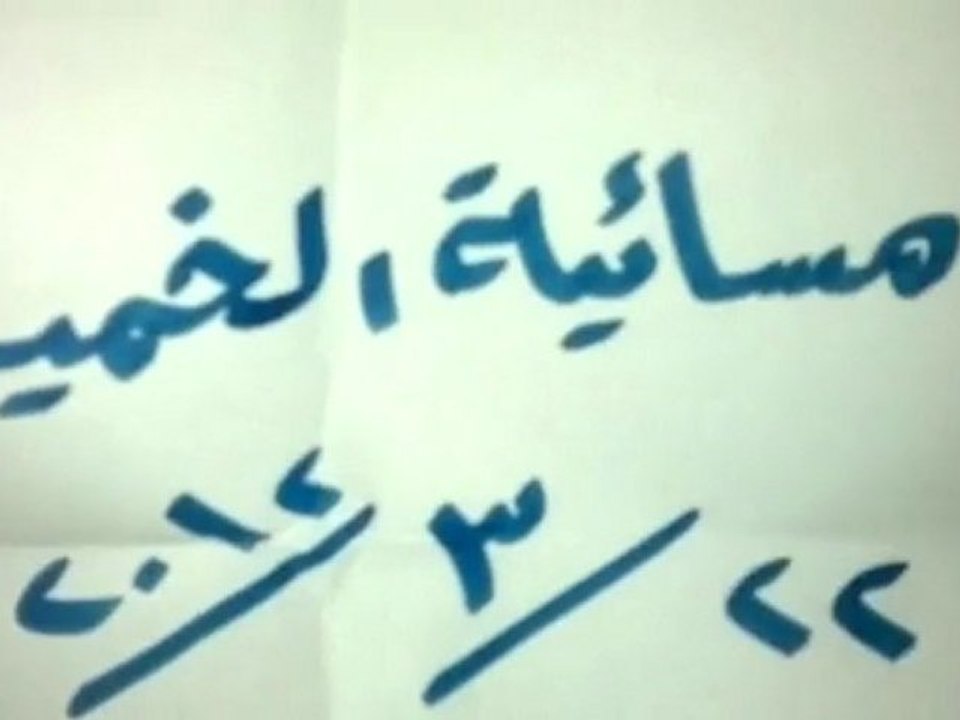 مسائية الخميـ
٢٢/٣/٢٠١٢